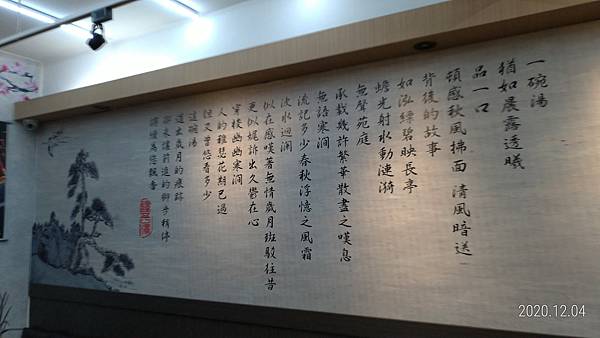 一碗湯
猶如晨露透曦
品一口
頓感秋風拂面 清風暗送
背後的故事
如泓縹碧映長亭
蟾光射水動漣漪
無聲苑庭
承載幾許繁華散盡之嘆息
無語寒澗
流記多少春秋浮憶之風霜
淡水迴瀾
似在感嘆著無情歲月斑駁往昔
更似娓訴出久鬱在心
穿枝幽幽寒澗
人的雅瑟花期已過
但又曾悠看多少
這碗湯
道出歲月的痕跡
卻未儘前進的腳步稍停
繼續為您飄香
2020.12.04